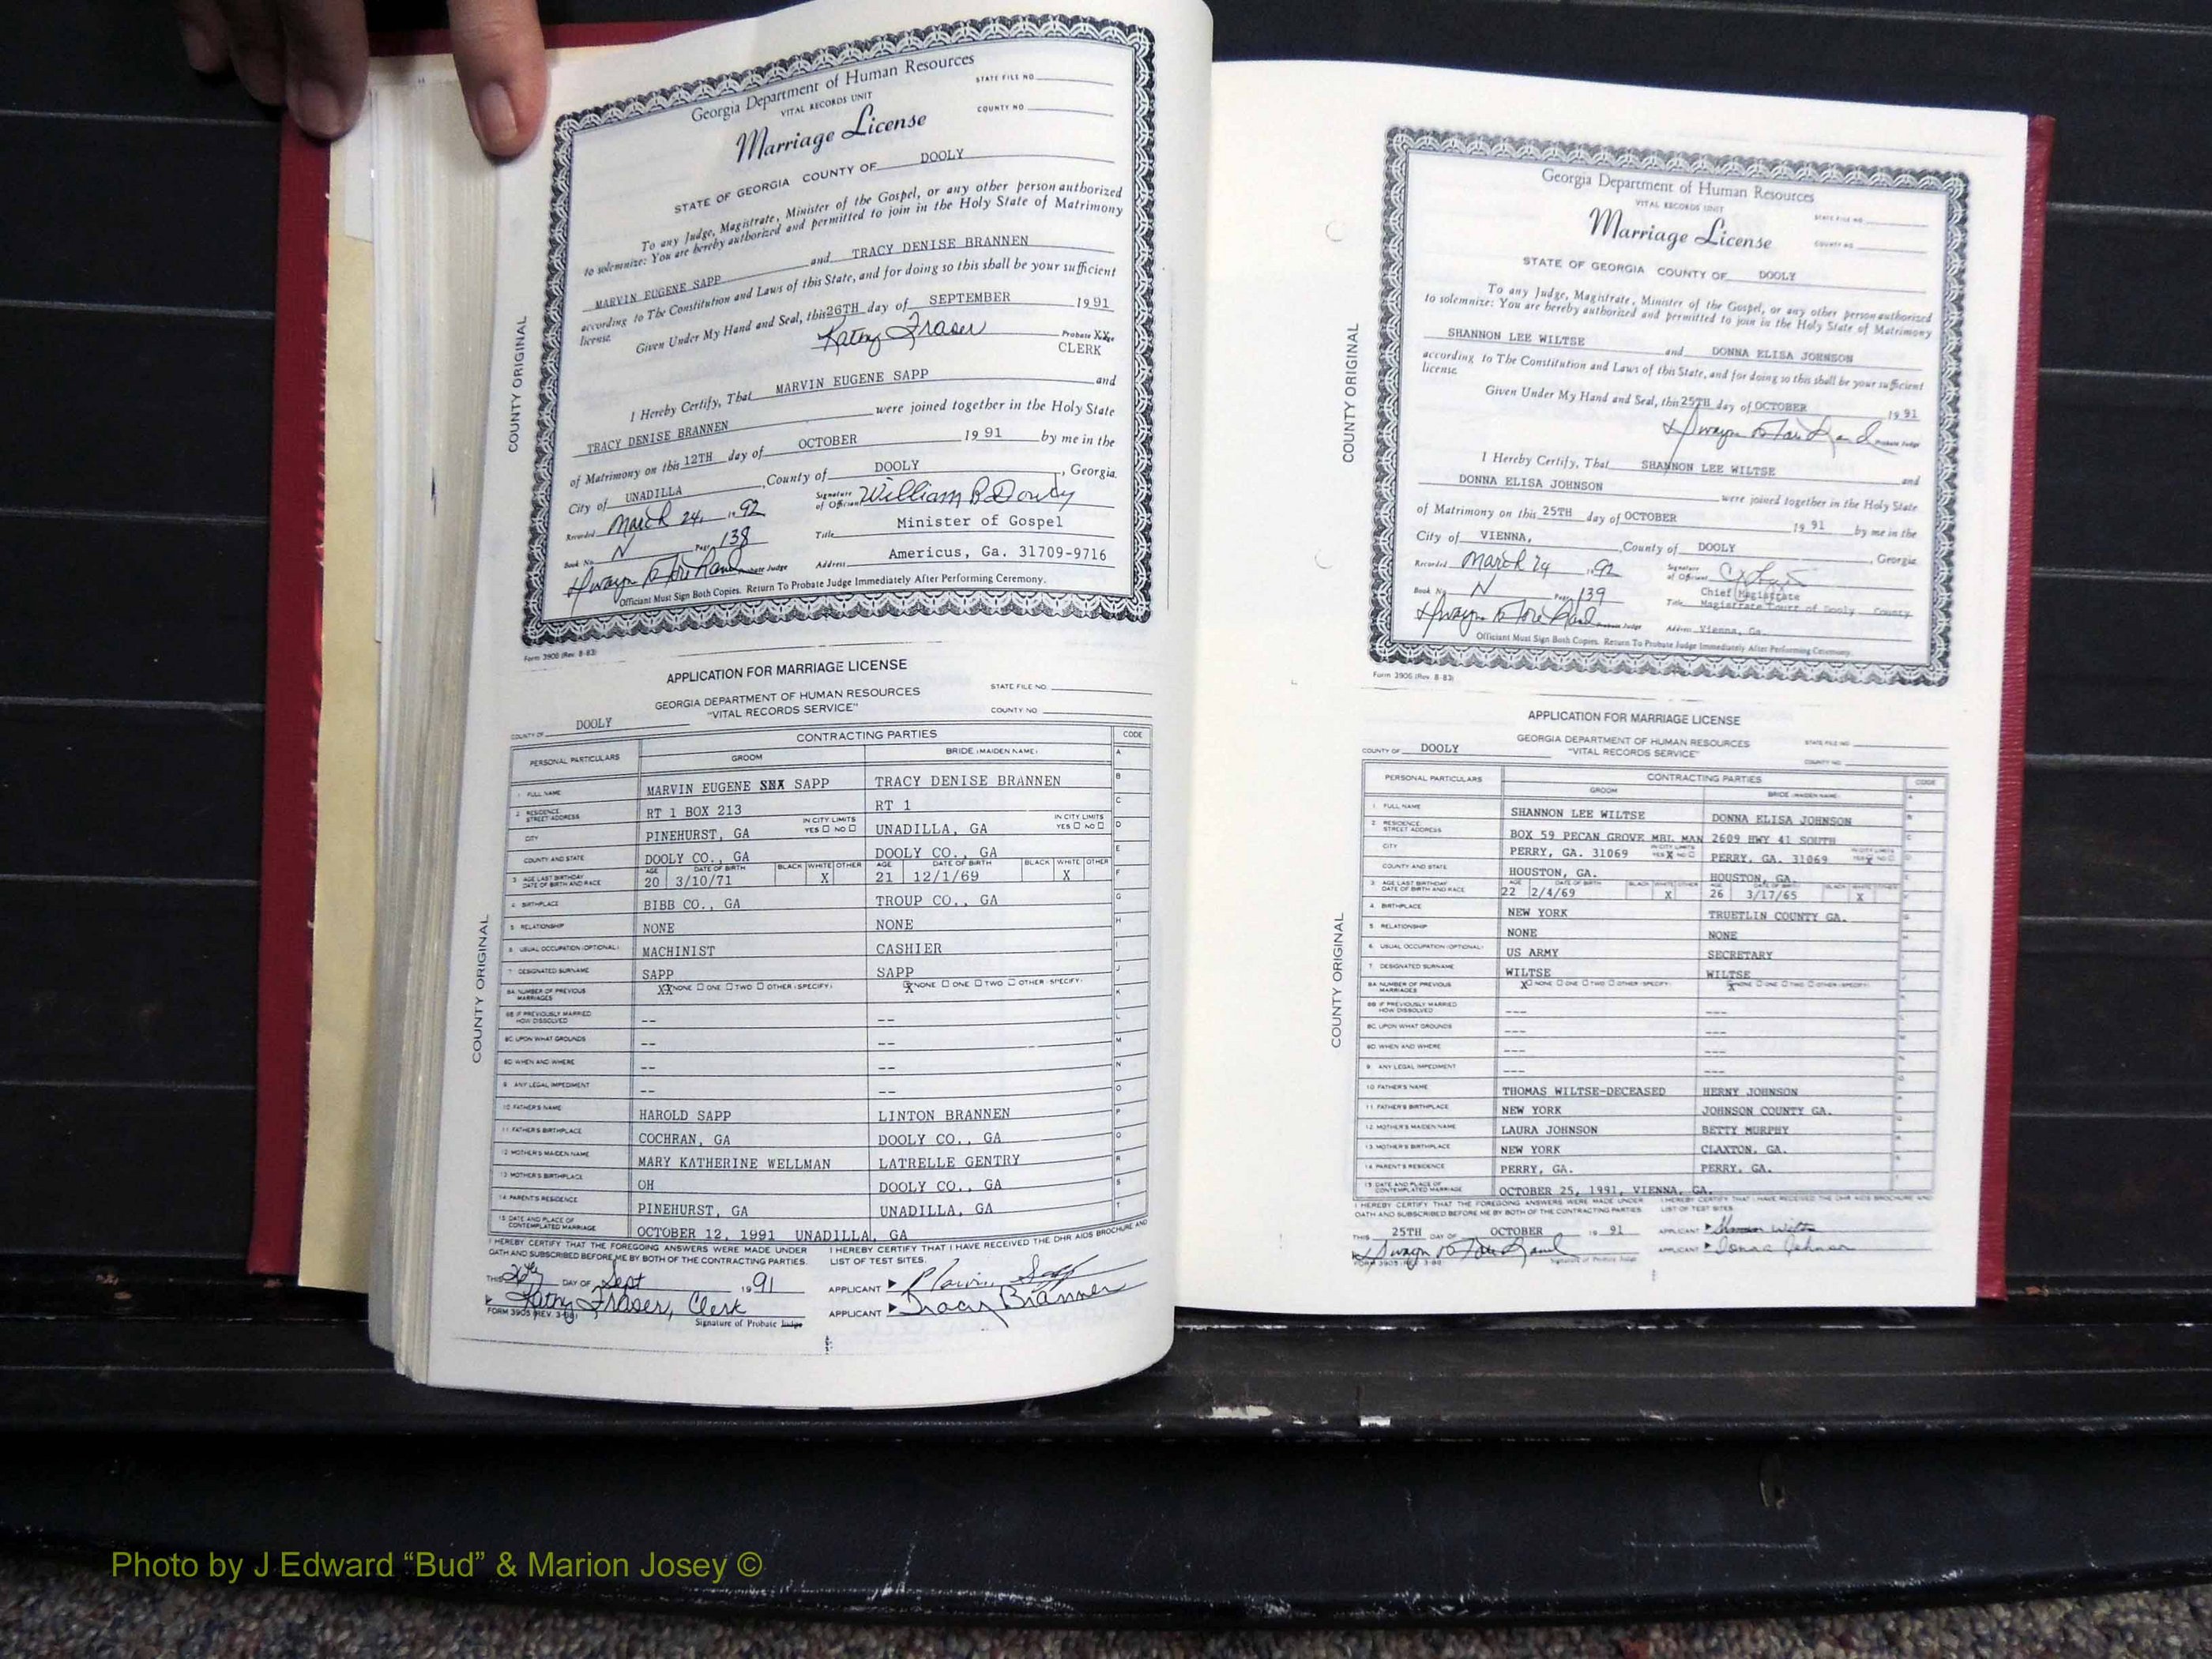 Georgia Department of Human Resources
VITAL RECORDS UNIT
STATE FILE NO.
COUNTY NO.
Marriage License
STATE OF GEORGIA COUNTY OF DOOLY
To any Judge, Magistrate, Minister of the Gospel, or any other person authorized
to solemnize: You are hereby authorized and permitted to join in the Holy State of Matrimony
MARVIN EUGENE SAPP and TRACY DENISE BRANNEN
according to The Constitution and Laws of this State, and for doing so this shall be your sufficient
license.
Given Under My Hand and Seal, this 26TH day of SEPTEMBER 1991
Kathy Fraser Probate
CLERK
I Hereby Certify, That MARVIN EUGENE SAPP and
TRACY DENISE BRANNEN were joined together in the Holy State
of Matrimony on this 12TH day of OCTOBER 1991 by me in the
City of UNADILLA, County of DOOLY, Georgia.
Recorded March 24, 1992
Signature of Official William B Dowdy
Book No. N Page 138
Title Minister of Gospel
Probate Judge
Address Americus, Ga. 31709-9716
Officiant Must Sign Both Copies. Return To Probate Judge Immediately After Performing Ceremony.
COUNTY ORIGINAL
Form 3906 (Rev. 8-83)
APPLICATION FOR MARRIAGE LICENSE
GEORGIA DEPARTMENT OF HUMAN RESOURCES
"VITAL RECORDS SERVICE"
STATE FILE NO.
COUNTY NO.
COUNTY OF DOOLY
PERSONAL PARTICULARS CONTRACTING PARTIES CODE
GROOM BRIDE (MAIDEN NAME)
1 FULL NAME MARVIN EUGENE SAPP TRACY DENISE BRANNEN
2 RESIDENCE STREET ADDRESS RT 1 BOX 213 RT 1
CITY PINEHURST, GA IN CITY LIMITS YES NO UNADILLA, GA IN CITY LIMITS YES NO
COUNTY AND STATE DOOLY CO., GA DOOLY CO., GA
3 AGE LAST BIRTHDAY DATE OF BIRTH AND RACE AGE 20 DATE OF BIRTH 3/10/71 BLACK WHITE X OTHER AGE 21 DATE OF BIRTH 12/1/69 BLACK WHITE X OTHER
4 BIRTHPLACE BIBB CO., GA TROUP CO., GA
5 RELATIONSHIP NONE NONE
6 USUAL OCCUPATION (OPTIONAL) MACHINIST CASHIER
7 DESIGNATED SURNAME SAPP SAPP
8A NUMBER OF PREVIOUS MARRIAGES XX NONE ONE TWO OTHER (SPECIFY) X NONE ONE TWO OTHER (SPECIFY)
8B IF PREVIOUSLY MARRIED HOW DISSOLVED -- --
8C UPON WHAT GROUNDS -- --
8D WHEN AND WHERE -- --
9 ANY LEGAL IMPEDIMENT -- --
10 FATHER'S NAME HAROLD SAPP LINTON BRANNEN
11 FATHER'S BIRTHPLACE COCHRAN, GA DOOLY CO., GA
12 MOTHER'S MAIDEN NAME MARY KATHERINE WELLMAN LATRELLE GENTRY
13 MOTHER'S BIRTHPLACE OH DOOLY CO., GA
14 PARENT'S RESIDENCE PINEHURST, GA UNADILLA, GA
15 DATE AND PLACE OF CONTEMPLATED MARRIAGE OCTOBER 12, 1991 UNADILLA, GA
I HEREBY CERTIFY THAT THE FOREGOING ANSWERS WERE MADE UNDER
OATH AND SUBSCRIBED BEFORE ME BY BOTH OF THE CONTRACTING PARTIES.
I HEREBY CERTIFY THAT I HAVE RECEIVED THE DHR AIDS BROCHURE AND
LIST OF TEST SITES.
THIS DAY OF Sept 1991
APPLICANT Marvin Sapp
Kathy Fraser, Clerk
APPLICANT Tracy Brannen
FORM 3905 (REV. 3-88)
Signature of Probate Judge
COUNTY ORIGINAL
Georgia Department of Human Resources
VITAL RECORDS UNIT
STATE FILE NO.
COUNTY NO.
Marriage License
STATE OF GEORGIA COUNTY OF DOOLY
To any Judge, Magistrate, Minister of the Gospel, or any other person authorized
to solemnize: You are hereby authorized and permitted to join in the Holy State of Matrimony
SHANNON LEE WILTSE and DONNA ELISA JOHNSON
according to The Constitution and Laws of this State, and for doing so this shall be your sufficient
license.
Given Under My Hand and Seal, this 25TH day of OCTOBER 1991
Probate Judge
I Hereby Certify, That SHANNON LEE WILTSE and
DONNA ELISA JOHNSON were joined together in the Holy State
of Matrimony on this 25TH day of OCTOBER 1991 by me in the
City of VIENNA, County of DOOLY, Georgia
Recorded March 24 1992
Signature of Official
Book No. N Page 139
Chief Magistrate
Title Magistrate Court of Dooly County
Probate Judge
Address Vienna, Ga.
Officiant Must Sign Both Copies. Return To Probate Judge Immediately After Performing Ceremony.
COUNTY ORIGINAL
Form 3906 (Rev. 8-83)
APPLICATION FOR MARRIAGE LICENSE
GEORGIA DEPARTMENT OF HUMAN RESOURCES
"VITAL RECORDS SERVICE"
STATE FILE NO.
COUNTY NO.
COUNTY OF DOOLY
PERSONAL PARTICULARS CONTRACTING PARTIES CODE
GROOM BRIDE (MAIDEN NAME)
1 FULL NAME SHANNON LEE WILTSE DONNA ELISA JOHNSON
2 RESIDENCE STREET ADDRESS BOX 59 PECAN GROVE MBL MAN 2609 HWY 41 SOUTH
CITY PERRY, GA. 31069 IN CITY LIMITS YES X NO PERRY, GA. 31069 IN CITY LIMITS YES X NO
COUNTY AND STATE HOUSTON, GA. HOUSTON, GA.
3 AGE LAST BIRTHDAY DATE OF BIRTH AND RACE AGE 22 DATE OF BIRTH 2/4/69 BLACK WHITE X OTHER AGE 26 DATE OF BIRTH 3/17/65 BLACK WHITE X OTHER
4 BIRTHPLACE NEW YORK TRUETLIN COUNTY GA.
5 RELATIONSHIP NONE NONE
6 USUAL OCCUPATION (OPTIONAL) US ARMY SECRETARY
7 DESIGNATED SURNAME WILTSE WILTSE
8A NUMBER OF PREVIOUS MARRIAGES X NONE ONE TWO OTHER (SPECIFY) X NONE ONE TWO OTHER (SPECIFY)
8B IF PREVIOUSLY MARRIED HOW DISSOLVED --- ---
8C UPON WHAT GROUNDS --- ---
8D WHEN AND WHERE --- ---
9 ANY LEGAL IMPEDIMENT --- ---
10 FATHER'S NAME THOMAS WILTSE-DECEASED HERNY JOHNSON
11 FATHER'S BIRTHPLACE NEW YORK JOHNSON COUNTY GA.
12 MOTHER'S MAIDEN NAME LAURA JOHNSON BETTY MURPHY
13 MOTHER'S BIRTHPLACE NEW YORK CLAXTON, GA.
14 PARENT'S RESIDENCE PERRY, GA. PERRY, GA.
15 DATE AND PLACE OF CONTEMPLATED MARRIAGE OCTOBER 25, 1991, VIENNA, GA.
I HEREBY CERTIFY THAT THE FOREGOING ANSWERS WERE MADE UNDER
OATH AND SUBSCRIBED BEFORE ME BY BOTH OF THE CONTRACTING PARTIES
I HEREBY CERTIFY THAT I HAVE RECEIVED THE DHR AIDS BROCHURE AND
LIST OF TEST SITES.
THIS 25TH DAY OF OCTOBER 1991
APPLICANT Shannon Wiltse
APPLICANT Donna Johnson
FORM 3905 (REV. 3-88)
Signature of Probate Judge
COUNTY ORIGINAL
Photo by J Edward “Bud” & Marion Josey ©